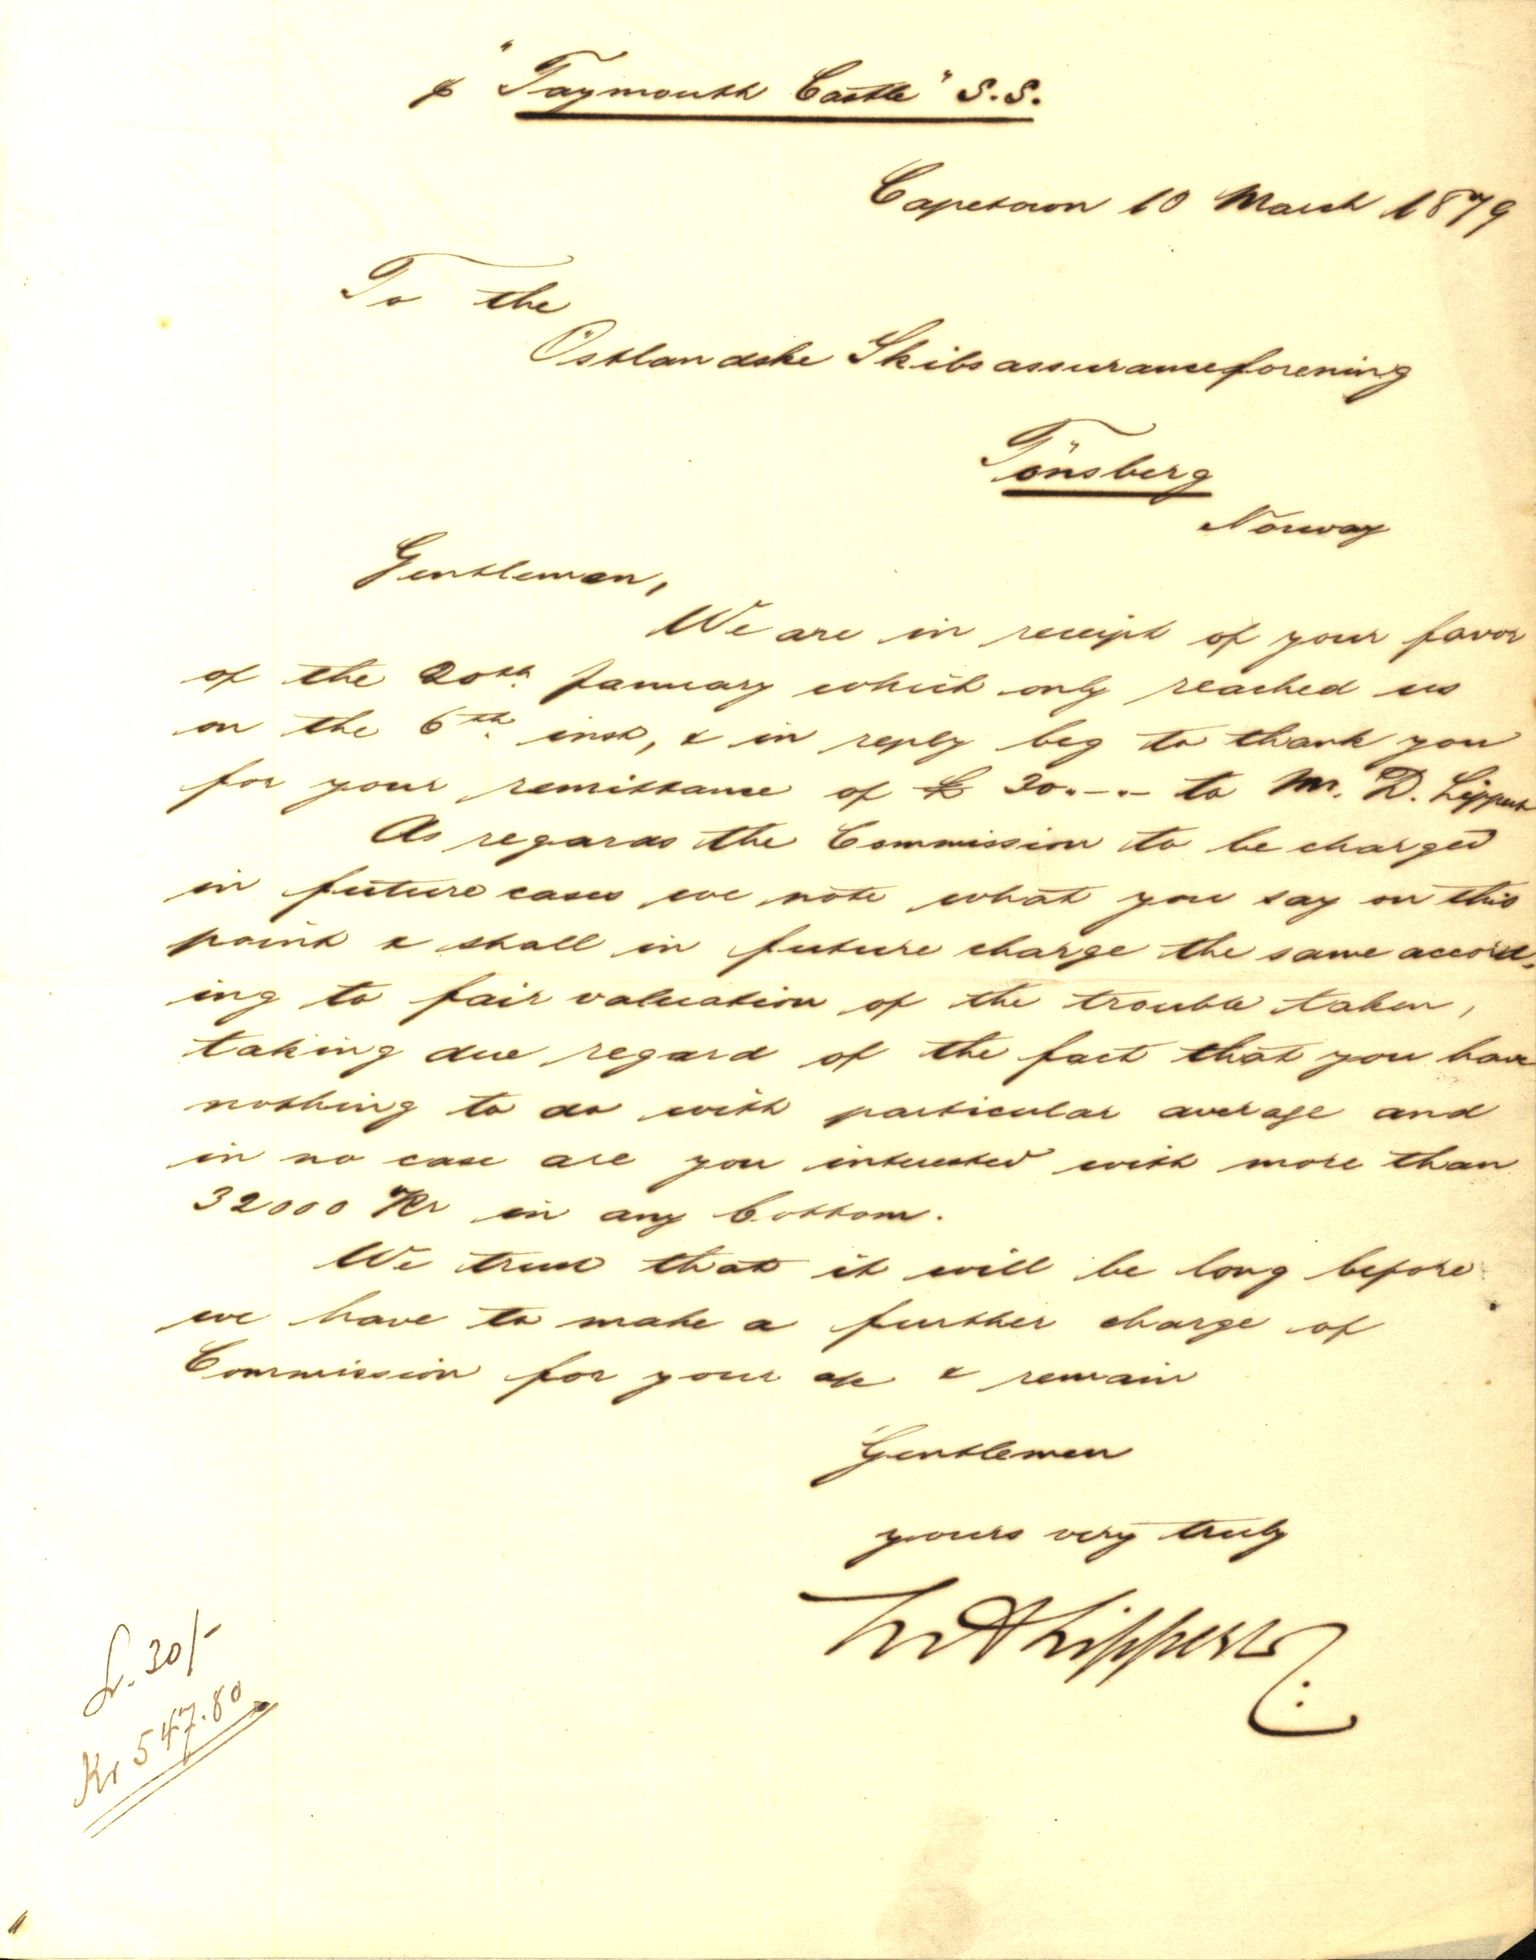 p "Taymouth Castle" S.S.
Capetown 10 March 1879
To the
Östlandske Skibsassuranceforening
Tönsberg
Norway
Gentlemen,
We are in receipt of your favor
of the 20th January which only reached us
on the 6th inst, & in reply beg to thank you
for your remittance of £ 30.-.- to Mr. D. Lippert
As regards the Commission to be charged
in future cases we note what you say on this
point & shall in future charge the same accord-
ing to fair valuation of the trouble taken,
taking due regard of the fact that you have
nothing to do with particular average and
in no case are you interested with more than
32000 Kr in any bottom.
We trust that it will be long before
we have to make a further charge of
Commission for your a/c & remain
Gentlemen
yours very truly
Lippert
£. 30/-
Kr 547.80